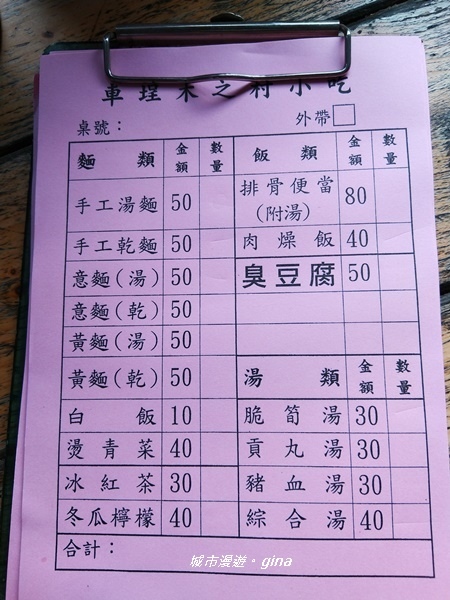 車埕木之村小吃
桌號： 外帶
麵類 金額 數量 飯類 金額 數量
手工湯麵 50 排骨便當(附湯) 80
手工乾麵 50 肉燥飯 40
意麵(湯) 50 臭豆腐 50
意麵(乾) 50
黃麵(湯) 50
黃麵(乾) 50 湯類 金額 數量
白飯 10 脆筍湯 30
燙青菜 40 貢丸湯 30
冰紅茶 30 豬血湯 30
冬瓜檸檬 40 綜合湯 40
合計：
城市漫遊。gina